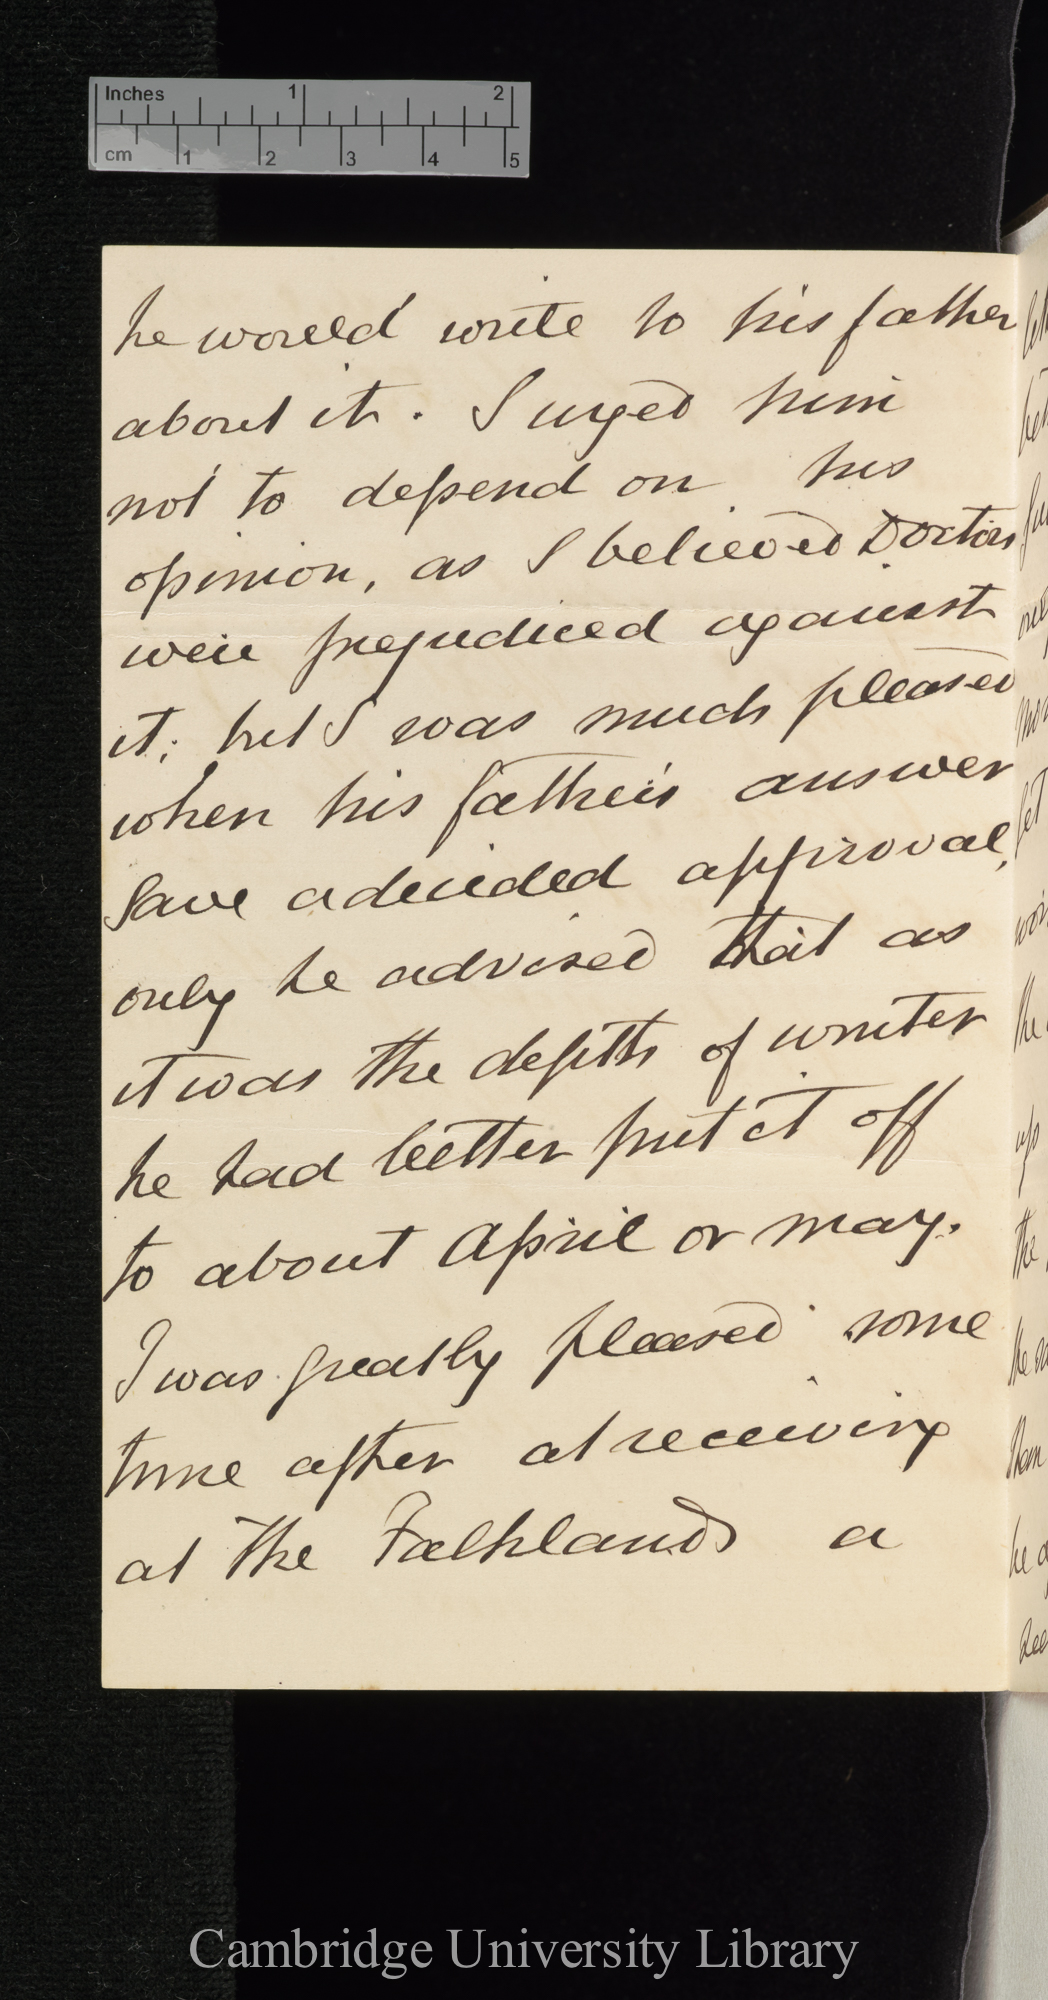 Inches 1 2
cm 1 2 3 4 5
he would write to his father
about it. I urged him
not to depend on his
opinion, as I believed Doctors
were prejudiced against
it; but I was much pleased
when his father's answer
gave a decided approval,
only he advised that as
it was the depth of winter
he had better put it off
to about April or may.
I was greatly pleased some
time after at receiving
at the Falklands a
Cambridge University Library